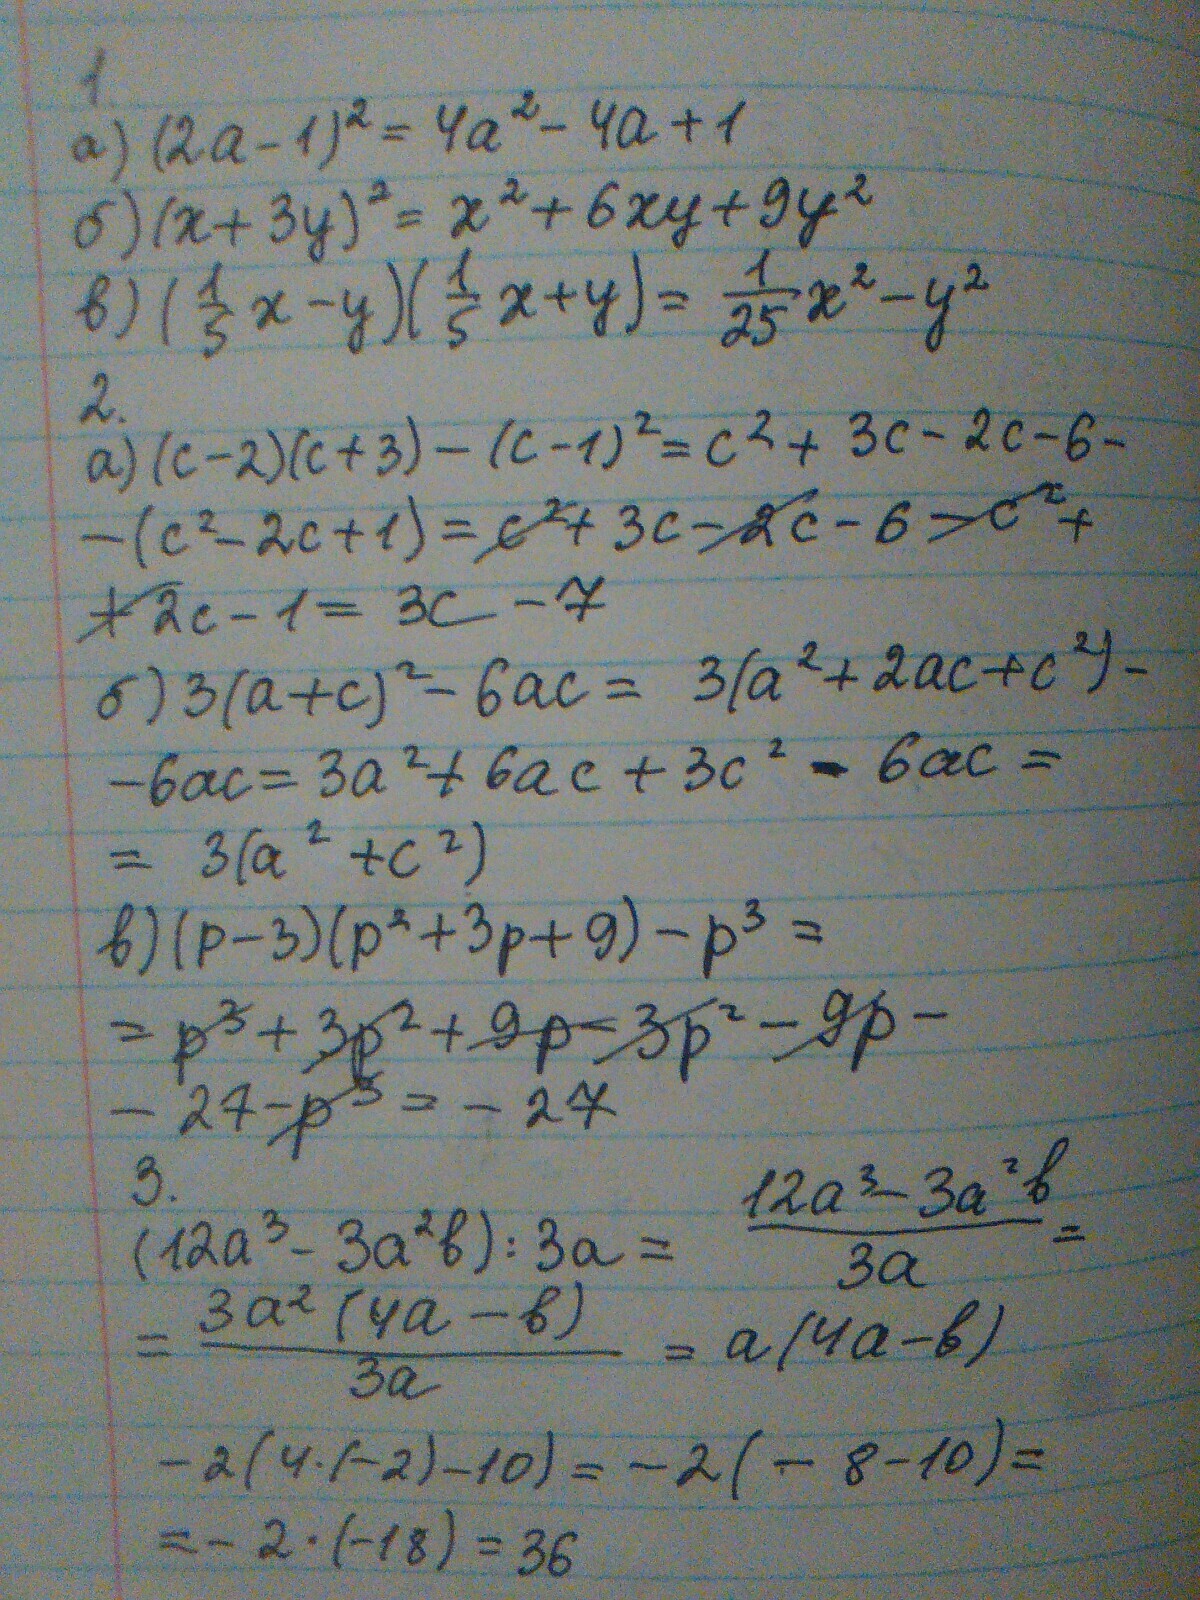 1.
а) (2a - 1)² = 4a² - 4a + 1
б) (x + 3y)² = x² + 6xy + 9y²
в) (1/5 x - y)(1/5 x + y) = 1/25 x² - y²
2.
а) (c - 2)(c + 3) - (c - 1)² = c² + 3c - 2c - 6 -
- (c² - 2c + 1) = c² + 3c - 2c - 6 - c² +
+ 2c - 1 = 3c - 7
б) 3(a + c)² - 6ac = 3(a² + 2ac + c²) -
- 6ac = 3a² + 6ac + 3c² - 6ac =
= 3(a² + c²)
в) (p - 3)(p² + 3p + 9) - p³ =
= p³ + 3p² + 9p - 3p² - 9p -
- 27 - p³ = - 27
3.
(12a³ - 3a²b) : 3a = (12a³ - 3a²b)/3a =
= 3a²(4a - b)/3a = a(4a - b)
- 2(4·(-2) - 10) = - 2(- 8 - 10) =
= - 2·(-18) = 36